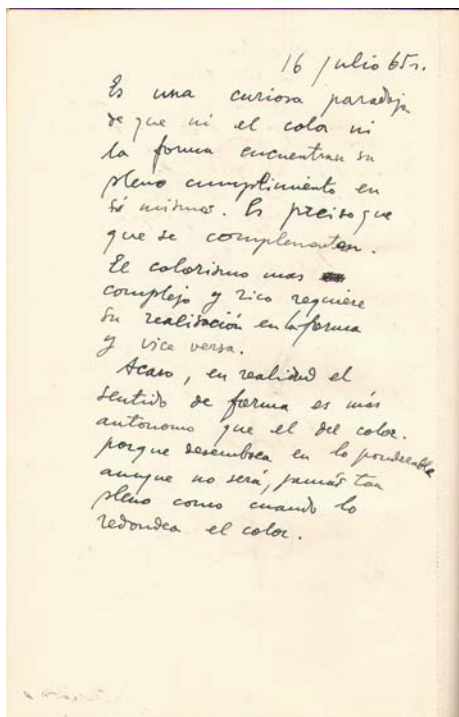 16 julio 65.
Es una curiosa paradoja
de que ni el color ni
la forma encuentran su
pleno cumplimiento en
sí mismos. Es preciso que
que se complementen.
El colorismo mas
complejo y rico requiere
su realisación en la forma
y vice versa.
Acaso, en realidad el
sentido de forma es más
autonomo que el del color.
porque desemboca en lo ponderable
aunque no será, jamás tan
pleno como cuando lo
redondea el color.